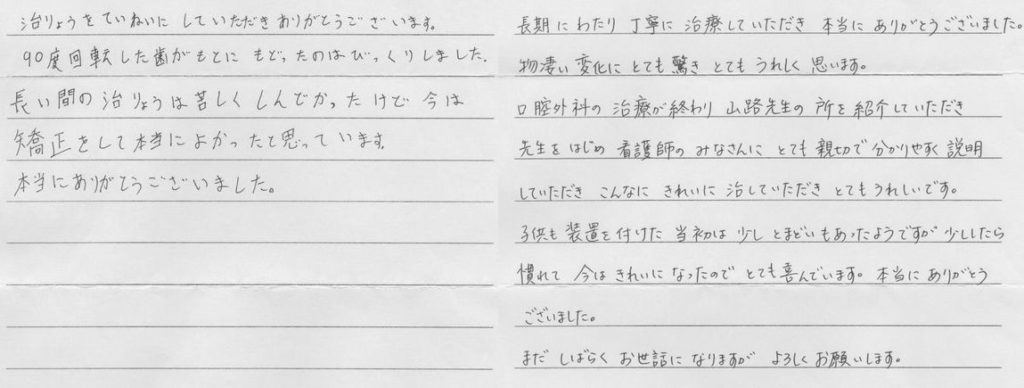 治りょうをていねいに していただきありがとうございます。
90度回転した歯がもとに もどったのはびっくりしました。
長い間の治りょうは苦しくしんどかったけど 今は
矯正をして本当によかったと思っています。
本当にありがとうございました。
長期にわたり 丁寧に 治療していただき 本当に ありがとうございました。
物凄い変化に とても驚き とても うれしく 思います。
口腔外科の 治療が終わり 山路先生の 所を紹介していただき
先生をはじめ 看護師の みなさんに とても 親切で分かりやすく 説明
していただき こんなに きれいに 治していただき とてもうれしいです。
子供も 装置を付けた 当初は 少し とまどいもあったようですが 少ししたら
慣れて 今は きれいに なったので とても喜んでいます。本当に ありがとう
ございました。
まだ しばらく お世話に なりますが よろしく お願いします。